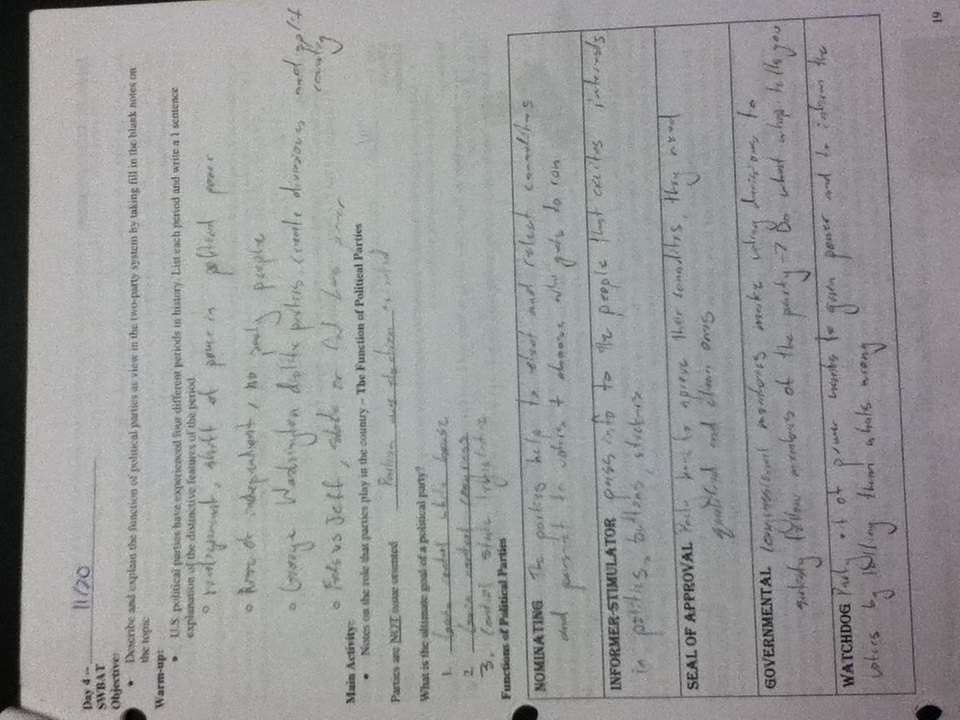 Day 4 – 11/20
SWBAT
Objective:
• Describe and explain the function of political parties as view in the two-party system by taking fill in the blank notes on
the topic
Warm-up:
• U.S. political parties have experienced four different periods in history. List each period and write a 1 sentence
explanation of the distinctive features of the period.
o realignment, shift of power in political power
o Rise of independent, no party people
o George Washington dislike parties, create divisions, and split
country
o Feds vs Jeff, state or fed has power
Main Activity:
• Notes on the role that parties play in the country – The Function of Political Parties
Parties are NOT issue oriented election oriented
What is the ultimate goal of a political party?
1. Gain control white house
2. Gain control congress
3. Control state legislative
Functions of Political Parties
NOMINATING The parties help to elect and select
and to voters + choose who gets to run
INFORMER-STIMULATOR pass info to the people that excites interests
in politics, buttons, stickers
SEAL OF APPROVAL Party have to aprove their they need
qualified and clean ones
GOVERNMENTAL congressional members make voting decisions to
follow members of the party → Do what whip tells you
WATCHDOG Party out of power wants to gain power and to inform the
voters by telling them whats wrong
19